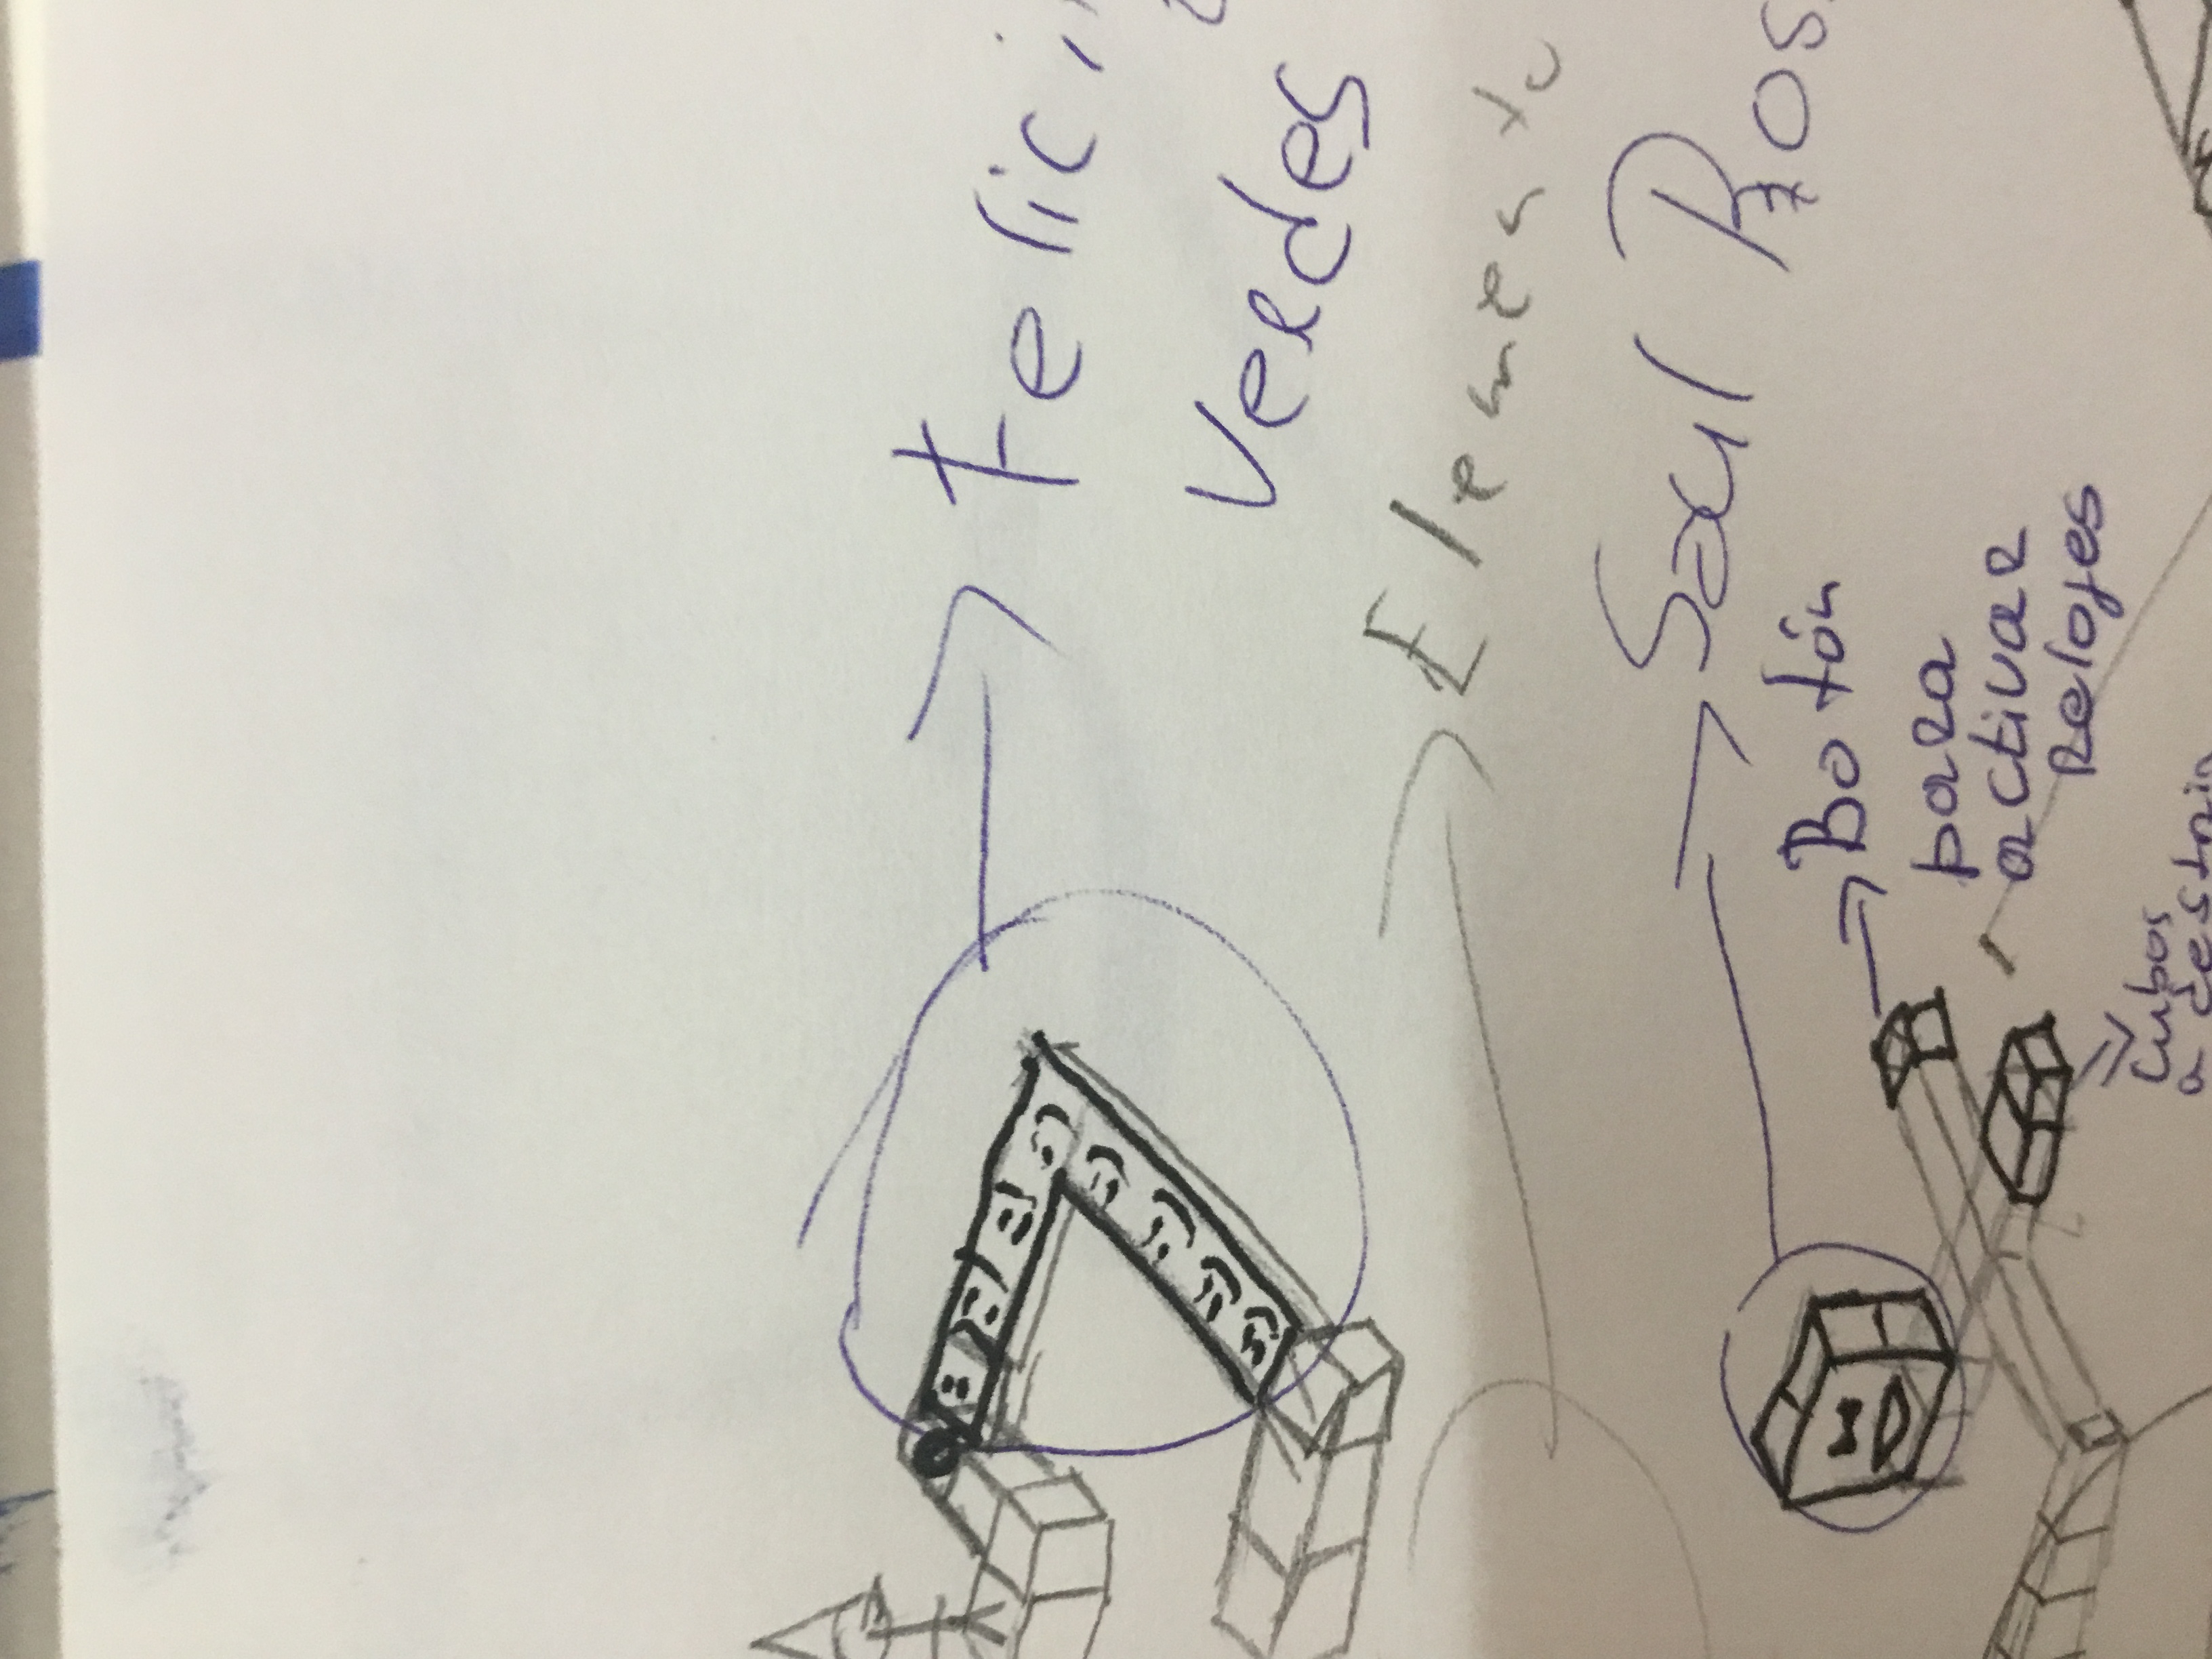 Felici
Verdes
Elemento
Saul Ros
Botón
para
activar
Relojes
Cubos
a destruir